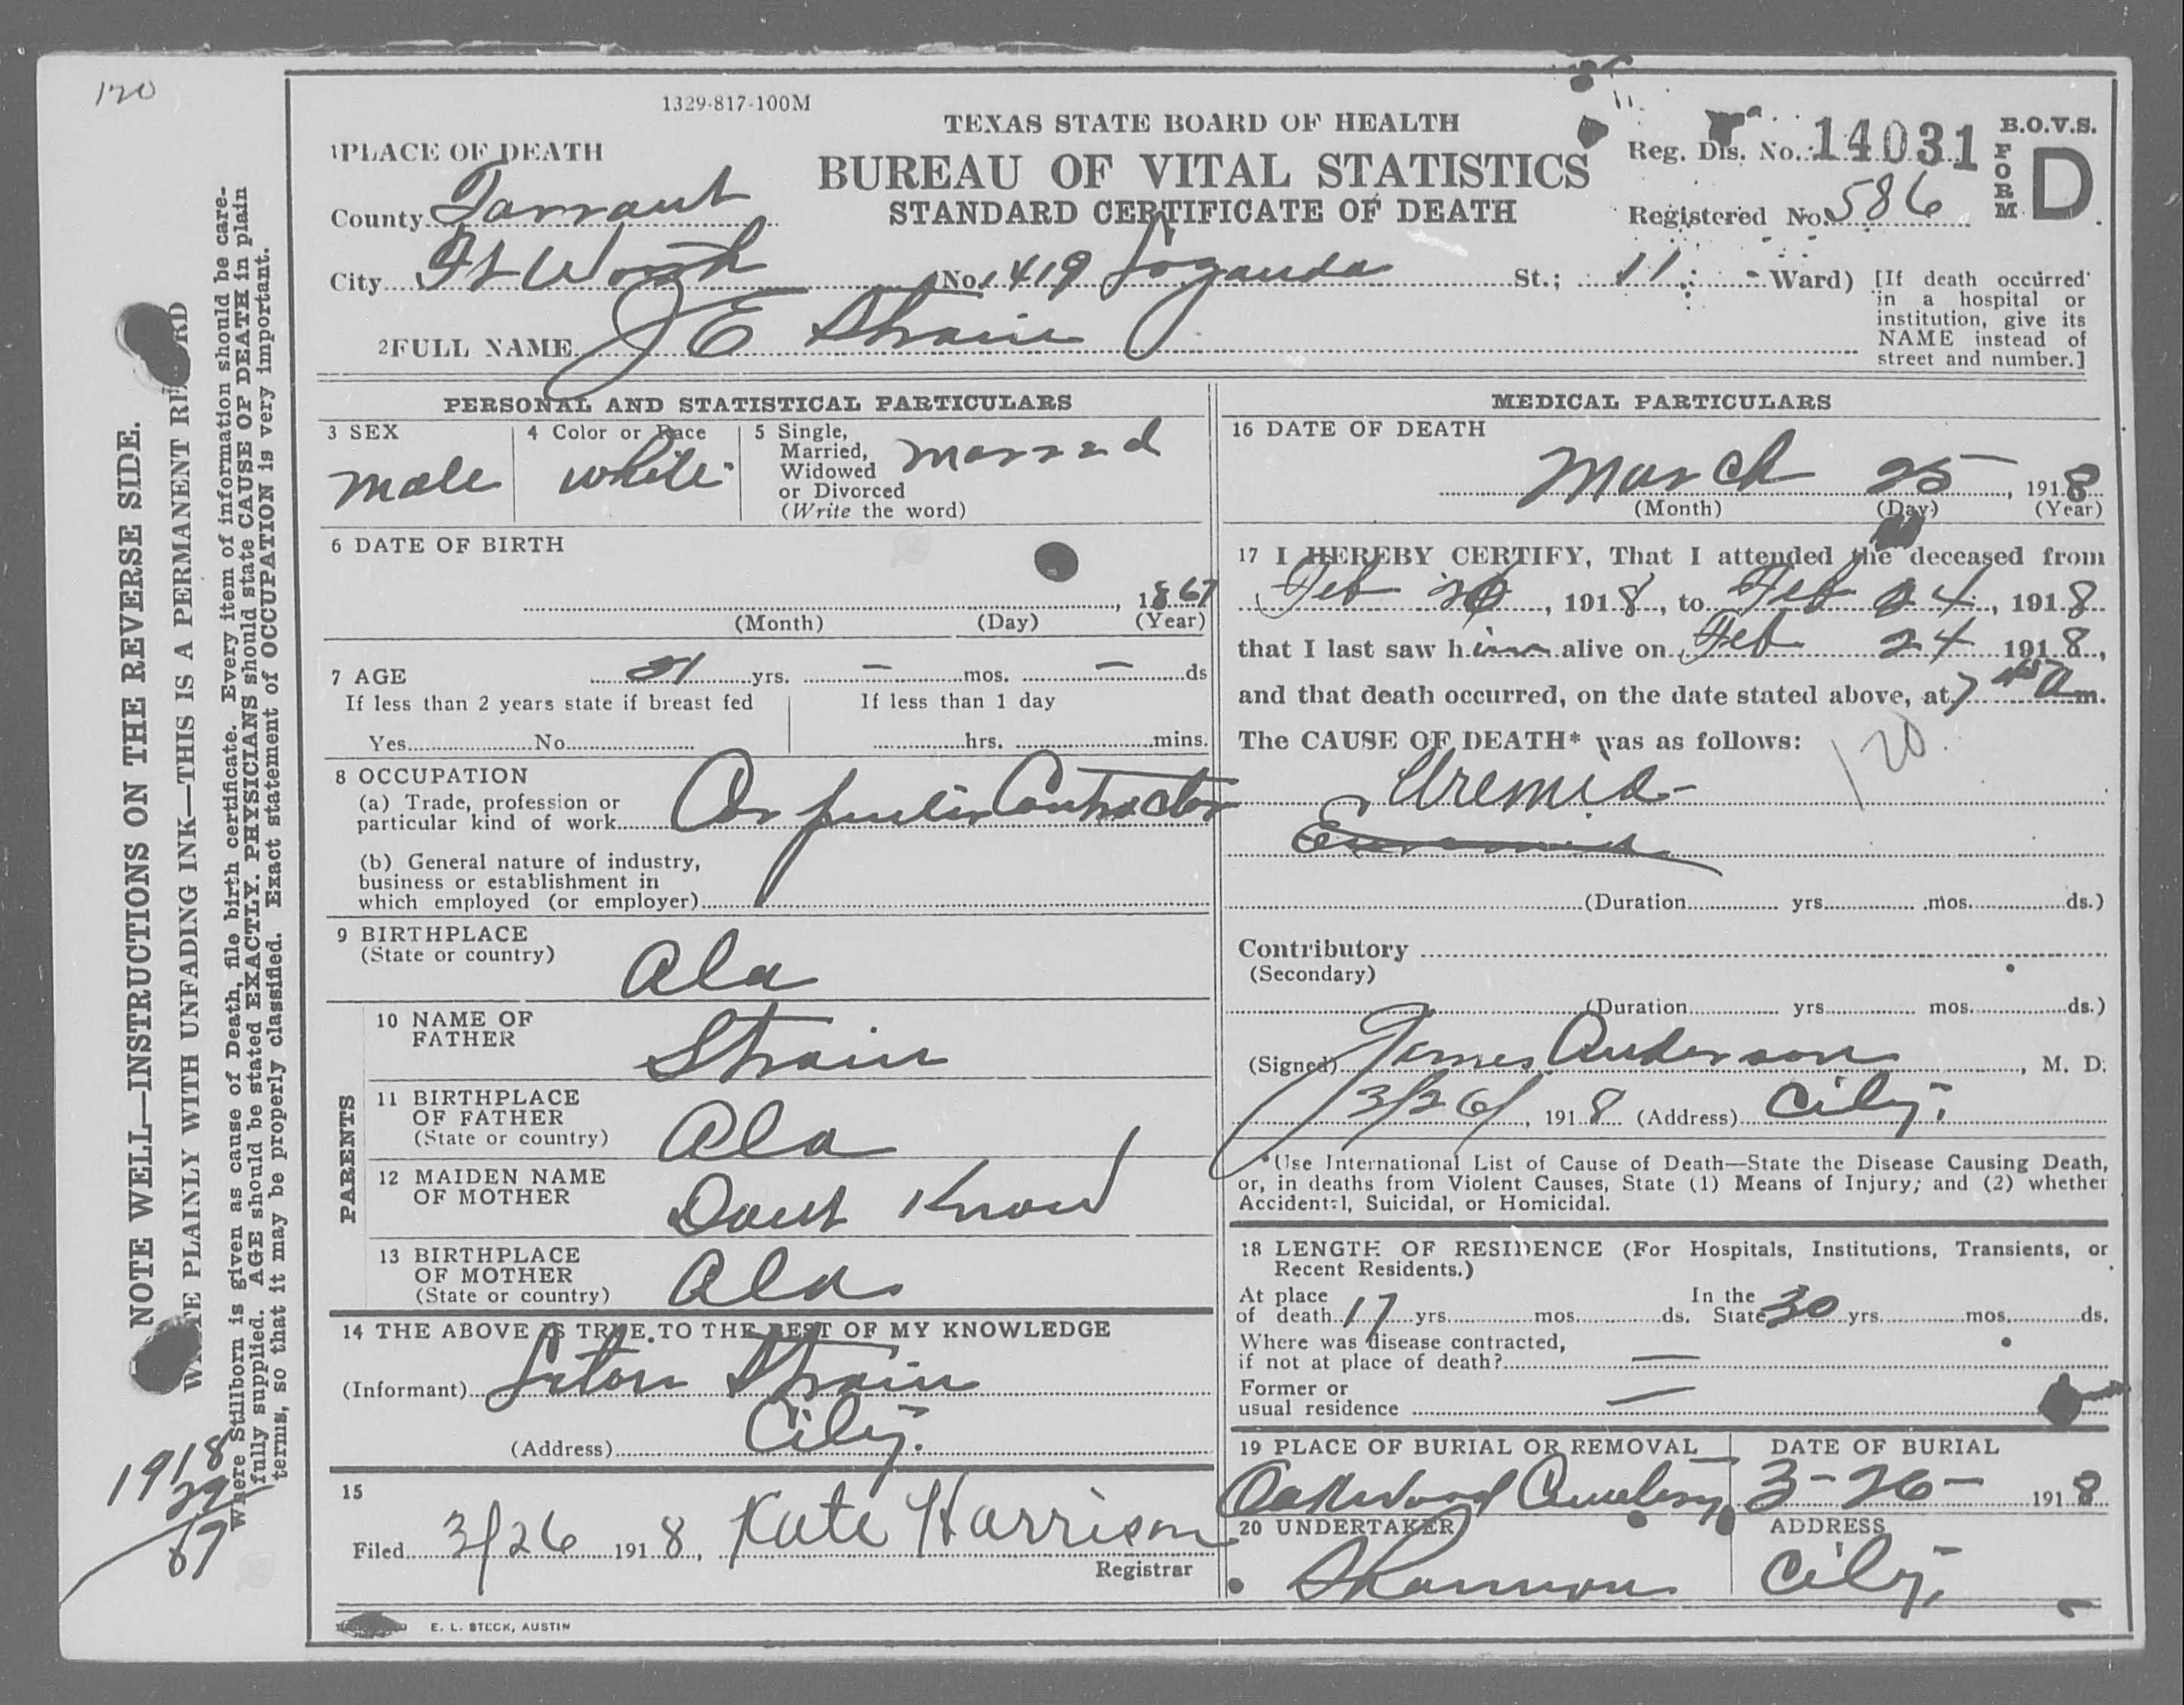 120
1329-817-100M
TEXAS STATE BOARD OF HEALTH
BUREAU OF VITAL STATISTICS
STANDARD CERTIFICATE OF DEATH
Reg. Dis. No. 14031
Registered No. 586
B.O.V.S.
FORM D
1 PLACE OF DEATH
County Tarrant
City Ft Worth No. 1419 St.; 11 Ward)
[If death occurred
in a hospital or
institution, give its
NAME instead of
street and number.]
2 FULL NAME J E Strain
PERSONAL AND STATISTICAL PARTICULARS
3 SEX
male
4 Color or Race
white
5 Single,
Married,
Widowed
or Divorced
(Write the word)
married
6 DATE OF BIRTH
, 1867
(Month) (Day) (Year)
7 AGE 51 yrs. — mos. — ds
If less than 2 years state if breast fed
If less than 1 day
Yes No
hrs. mins.
8 OCCUPATION
(a) Trade, profession or
particular kind of work Carpenter Contractor
(b) General nature of industry,
business or establishment in
which employed (or employer)
9 BIRTHPLACE
(State or country)
Ala
PARENTS
10 NAME OF
FATHER
Strain
11 BIRTHPLACE
OF FATHER
(State or country)
Ala
12 MAIDEN NAME
OF MOTHER
Dont Know
13 BIRTHPLACE
OF MOTHER
(State or country)
Ala
14 THE ABOVE IS TRUE TO THE BEST OF MY KNOWLEDGE
(Informant) Strain
(Address) City.
15
Filed 3/26 1918, Kate Harrison
Registrar
E. L. STECK, AUSTIN
MEDICAL PARTICULARS
16 DATE OF DEATH
March 25, 1918
(Month) (Day) (Year)
17 I HEREBY CERTIFY, That I attended the deceased from
Feb , 1918, to Feb 24, 1918
that I last saw him alive on Feb 24 1918,
and that death occurred, on the date stated above, at 7 45 a m.
The CAUSE OF DEATH* was as follows:
120
Uremia
(Duration yrs. mos. ds.)
Contributory
(Secondary)
(Duration yrs. mos. ds.)
(Signed) James Anderson, M. D.
3/26/, 1918 (Address) City.
*Use International List of Cause of Death—State the Disease Causing Death,
or, in deaths from Violent Causes, State (1) Means of Injury; and (2) whether
Accidental, Suicidal, or Homicidal.
18 LENGTH OF RESIDENCE (For Hospitals, Institutions, Transients, or
Recent Residents.)
At place
of death 17 yrs. mos. ds.
In the
State 30 yrs. mos. ds.
Where was disease contracted,
if not at place of death? —
Former or
usual residence —
19 PLACE OF BURIAL OR REMOVAL
Oakwood Cemetery
DATE OF BURIAL
3-26- 1918
20 UNDERTAKER
Shannon
ADDRESS
City.
NOTE WELL—INSTRUCTIONS ON THE REVERSE SIDE.
WRITE PLAINLY WITH UNFADING INK—THIS IS A PERMANENT RECORD
Where Stillborn is given as cause of Death, file birth certificate. Every item of information should be care-
fully supplied. AGE should be stated EXACTLY. PHYSICIANS should state CAUSE OF DEATH in plain
terms, so that it may be properly classified. Exact statement of OCCUPATION is very important.
1918
67